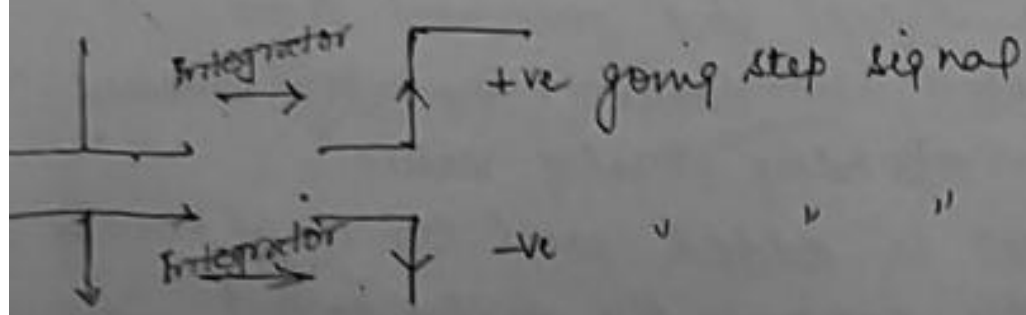 Integrator
+ve going step signal
Integrator
-ve " " "